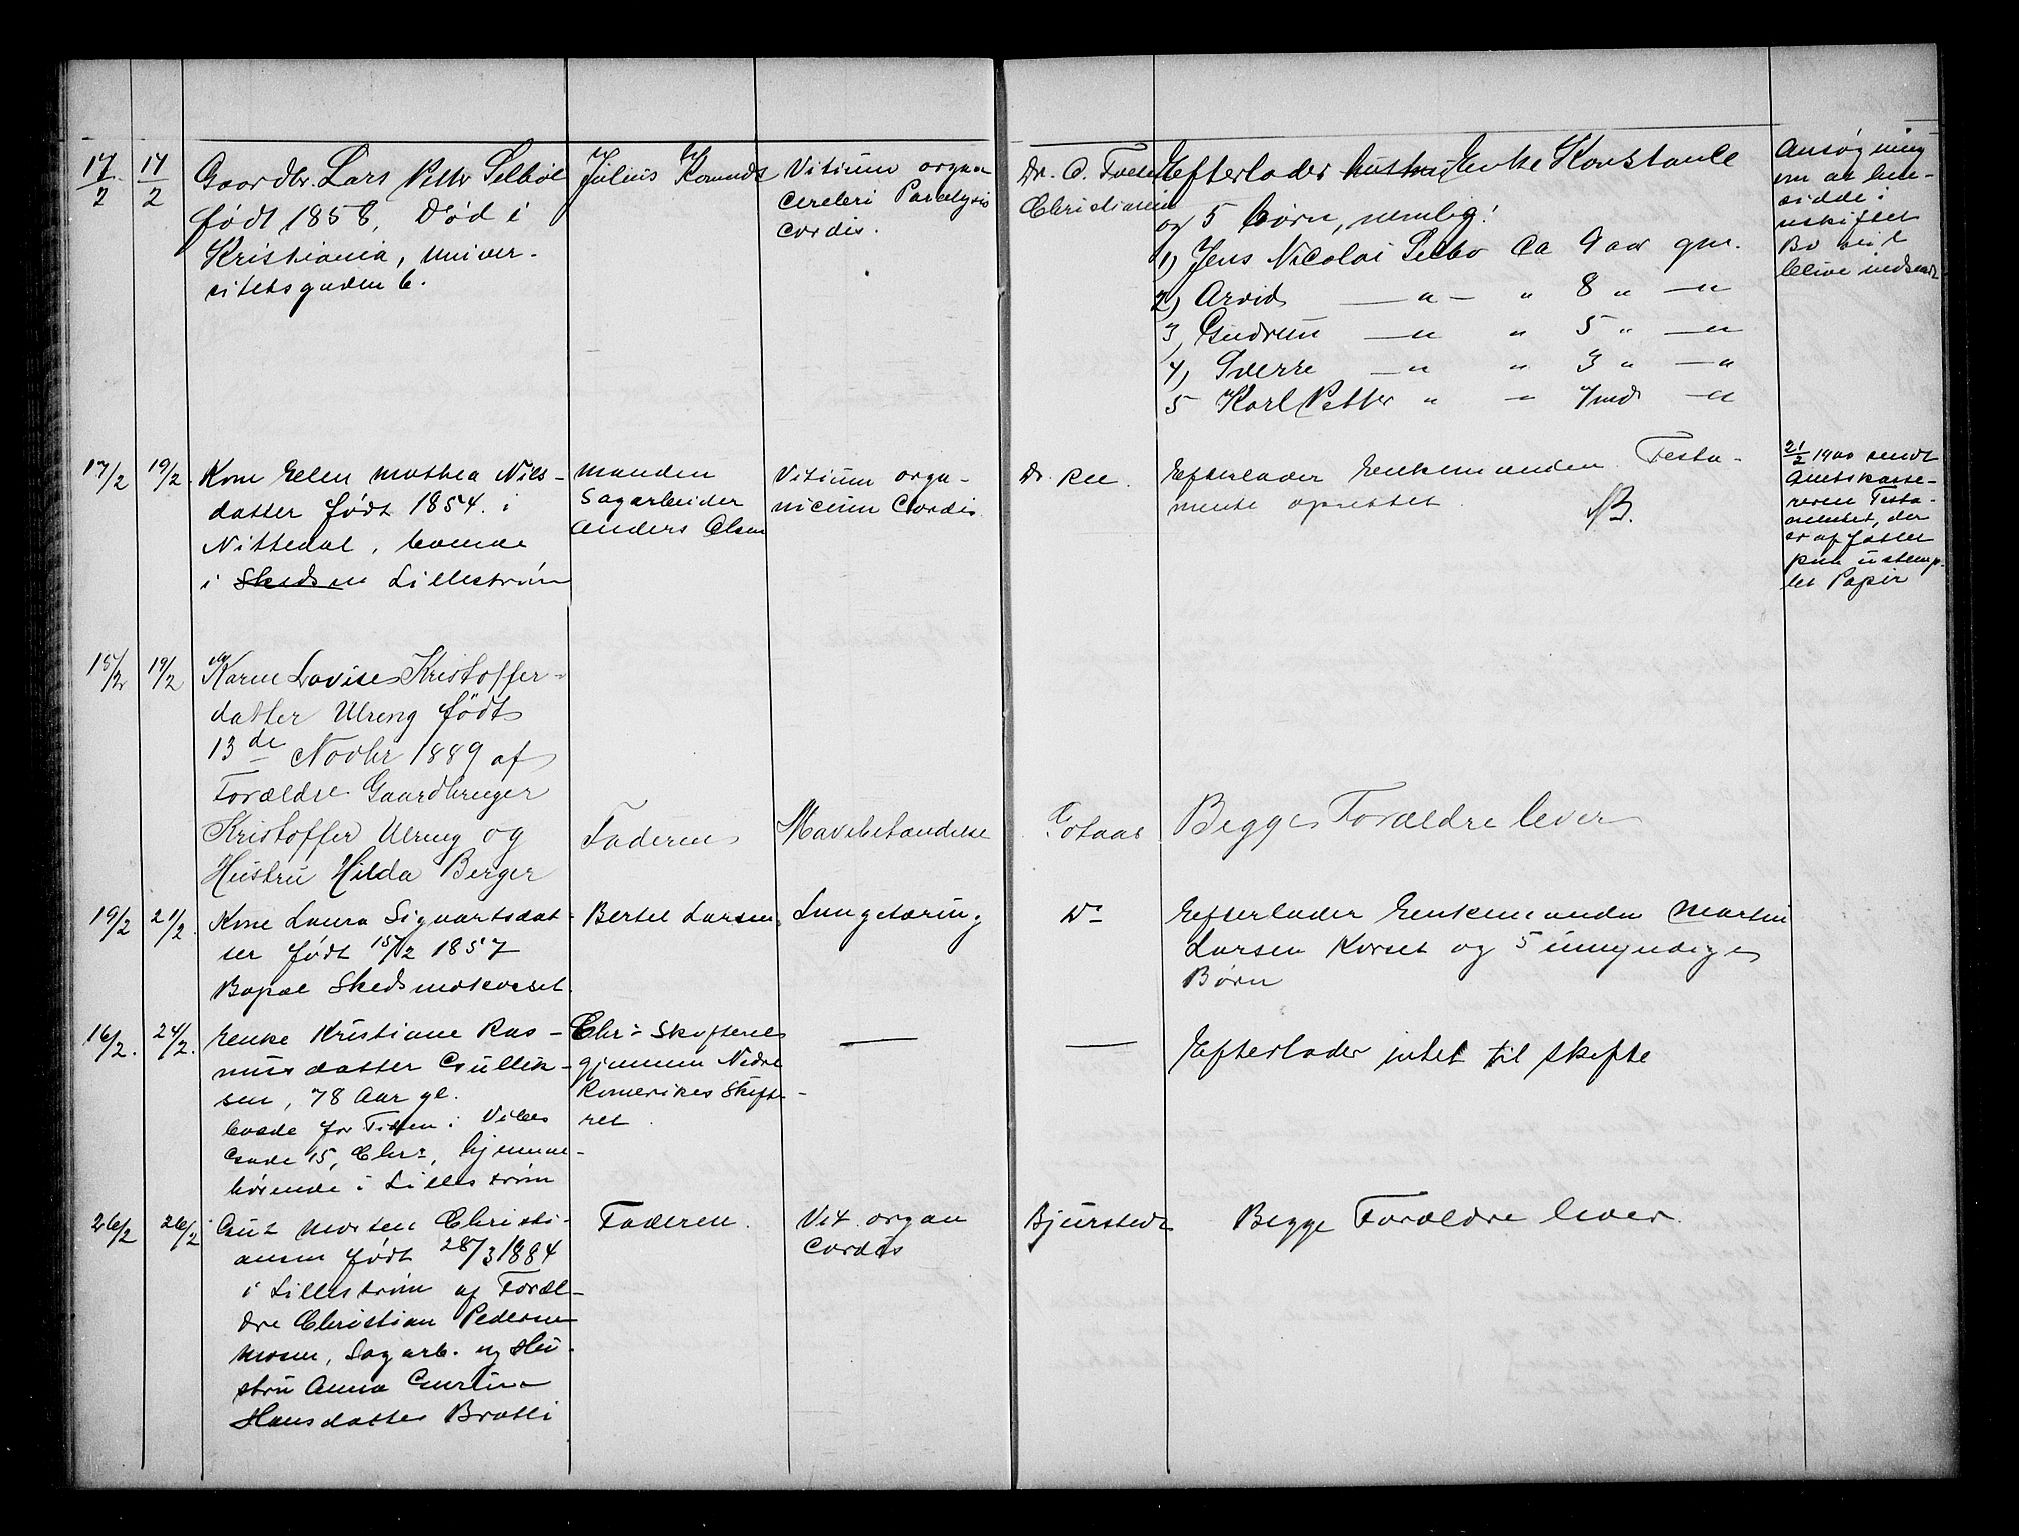 17/2 17/2 Gaardbr. Lars Petter Selboe
født 1858, Død i
Kristiania, Univer-
sitetsgaden 6.
Julius
Vitium organ
cerebri Paralysis
cordis.
Dr. C.
Christiania
Efterlader Hustru Enke Konstance
og 5 børn, nemlig:
1) Jens Nicolai Selbo ca 9 aar gm.
2) Arvid — " — " 8 " — "
3, Gudrun — " " 5 " — "
4) Sverre — " " 3 " — "
5 Karl Petter " " 7 md — "
Ansøgning
om at hen-
sidde i
uskiftet
Bo vil
blive indsendt
17/2 19/2. Kone Ellen Mathea Nils-
datter født 1854. i
Nittedal, boende
i Skedsm Lillestrøm
Manden
Sagarbeider
Anders Olsen
Vitium orga-
nicum Cordis
Dr Ree.
Efterlader Enkemanden. Testa-
mente oprettet.
NB.
21/2 1900 sendt
Amtskasse-
reren Testa-
mentet, der
er affattet
paa ustemp-
let Papir
15/2 19/2 Karen Lovise Kristoffer-
datter Ulreng født
13de Novbr 1889 af
Forældre Gaardbruger
Kristoffer Ulreng og
Hustru Hilda Berger
Faderen
Mavebetændelse
Gotaas
Begge Forældre lever
19/2 21/2. Kone Laura Sigvartsdat-
ter født 15/2 1857
Bopæl Skedsmokorset.
Bertel Larsen
Lungetæring
Do
Efterlader Enkemanden Martin
Larsen Korset og 5 umyndige
Børn
16/2. 24/2. Enke Kristiane Ras-
musdatter Gullik-
sen, 78 Aar gl.
boede for Tiden i Vibes
Gade 15, Chra, hjemme-
hørende i Lillestrøm
Chra Skifteret
gjennem Nedre
Romerikes Skifte-
ret
—
—
Efterlader intet til skifte
26/2 26/2 Gut Morten Christi-
ansen født 28/3 1884
i Lillestrøm af Foræl-
dre Christian Pedersen
Mosen, Sagarb. og Hu-
stru Anna Gurline
Hansdatter Bratli
Faderen.
Vit. organ
Cordis
Bjurstedt
Begge Forældre lever.